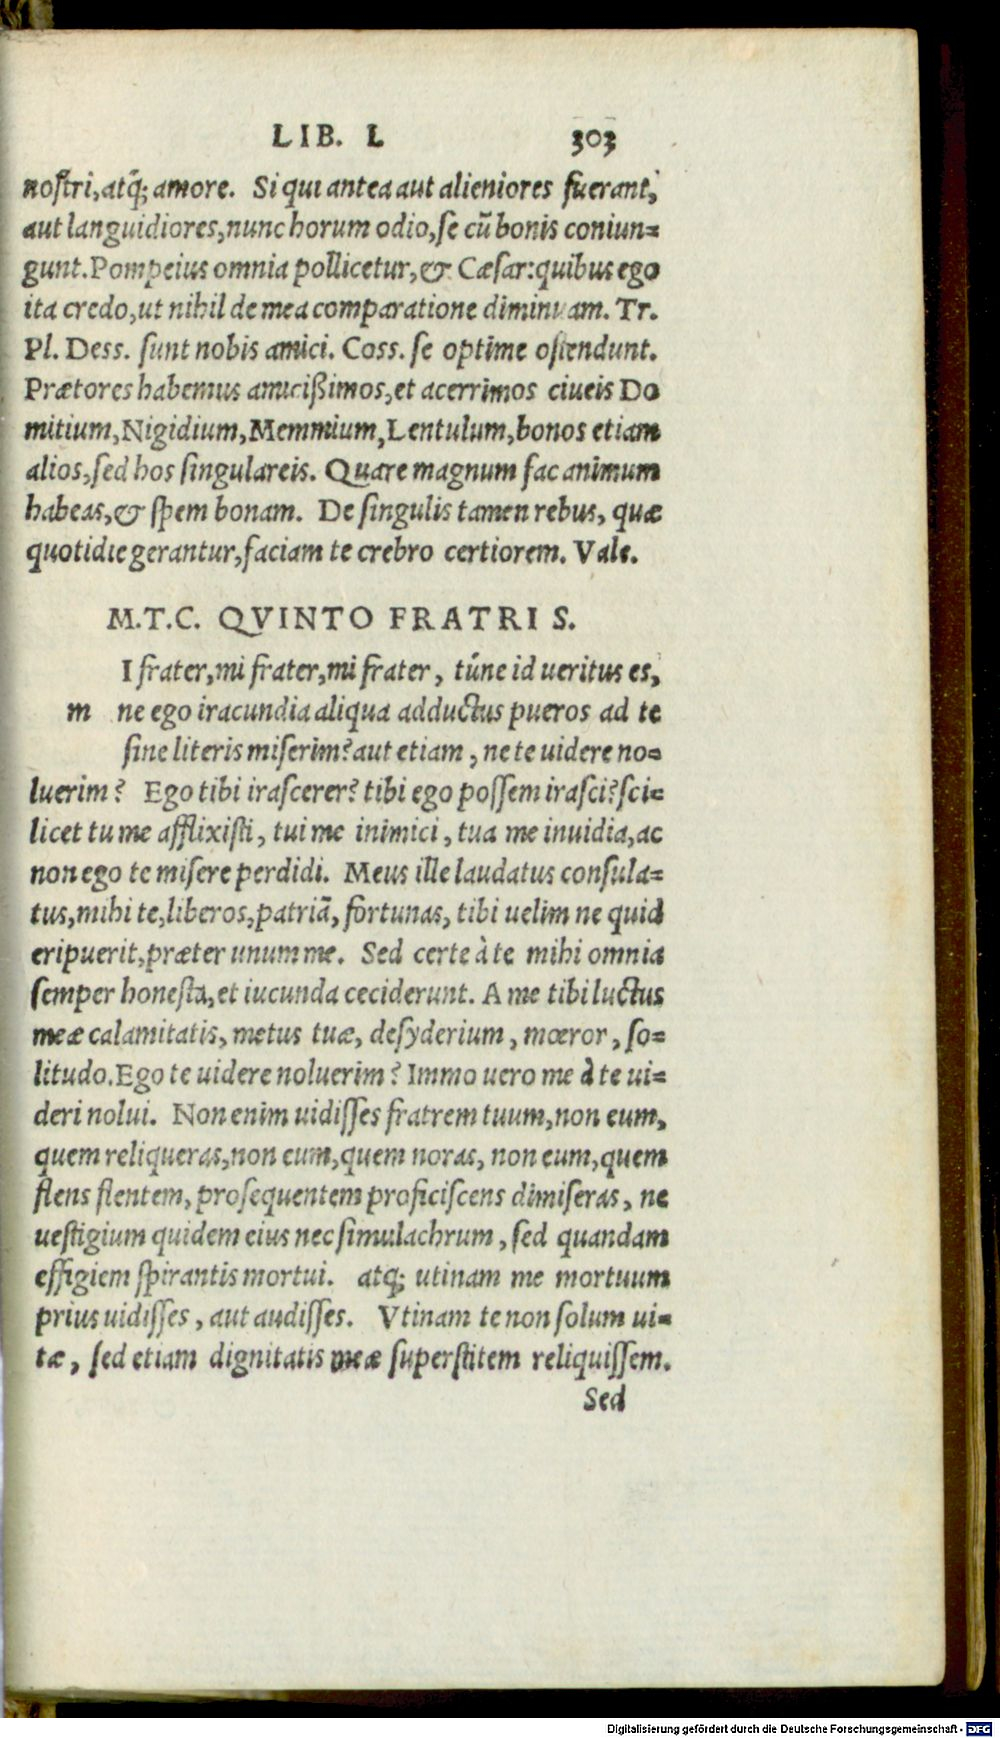 LIB. I. 303
nostri, atq; amore. Si qui antea aut alieniores fuerant,
aut languidiores, nunc horum odio, se cũ bonis coniun=
gunt. Pompeius omnia pollicetur, & Cæsar: quibus ego
ita credo, ut nihil de mea comparatione diminuam. Tr.
Pl. Dess. sunt nobis amici. Coss. se optime ostendunt.
Prætores habemus amicißimos, et acerrimos ciueis Do
mitium, Nigidium, Memmium, Lentulum, bonos etiam
alios, sed hos singulareis. Quare magnum fac animum
habeas, & spem bonam. De singulis tamen rebus, quæ
quotidie gerantur, faciam te crebro certiorem. Vale.
M.T.C. QVINTO FRATRI S.
I frater, mi frater, mi frater, tũne id ueritus es,
m ne ego iracundia aliqua adductus pueros ad te
sine literis miserim? aut etiam, ne te uidere no=
luerim? Ego tibi irascerer? tibi ego possem irasci? sci=
licet tu me afflixisti, tui me inimici, tua me inuidia, ac
non ego te misere perdidi. Meus ille laudatus consula=
tus, mihi te, liberos, patriã, fortunas, tibi uelim ne quid
eripuerit, præter unum me. Sed certe à te mihi omnia
semper honesta, et iucunda ceciderunt. A me tibi luctus
meæ calamitatis, metus tuæ, desyderium, mœror, so=
litudo. Ego te uidere noluerim? Immo uero me à te ui=
deri nolui. Non enim uidisses fratrem tuum, non eum,
quem reliqueras, non eum, quem noras, non eum, quem
flens flentem, prosequentem proficiscens dimiseras, ne
uestigium quidem eius nec simulachrum, sed quandam
effigiem spirantis mortui. atq; utinam me mortuum
prius uidisses, aut audisses. Vtinam te non solum ui=
tæ, sed etiam dignitatis meæ superstitem reliquissem.
Sed
Digitalisierung gefördert durch die Deutsche Forschungsgemeinschaft - DFG